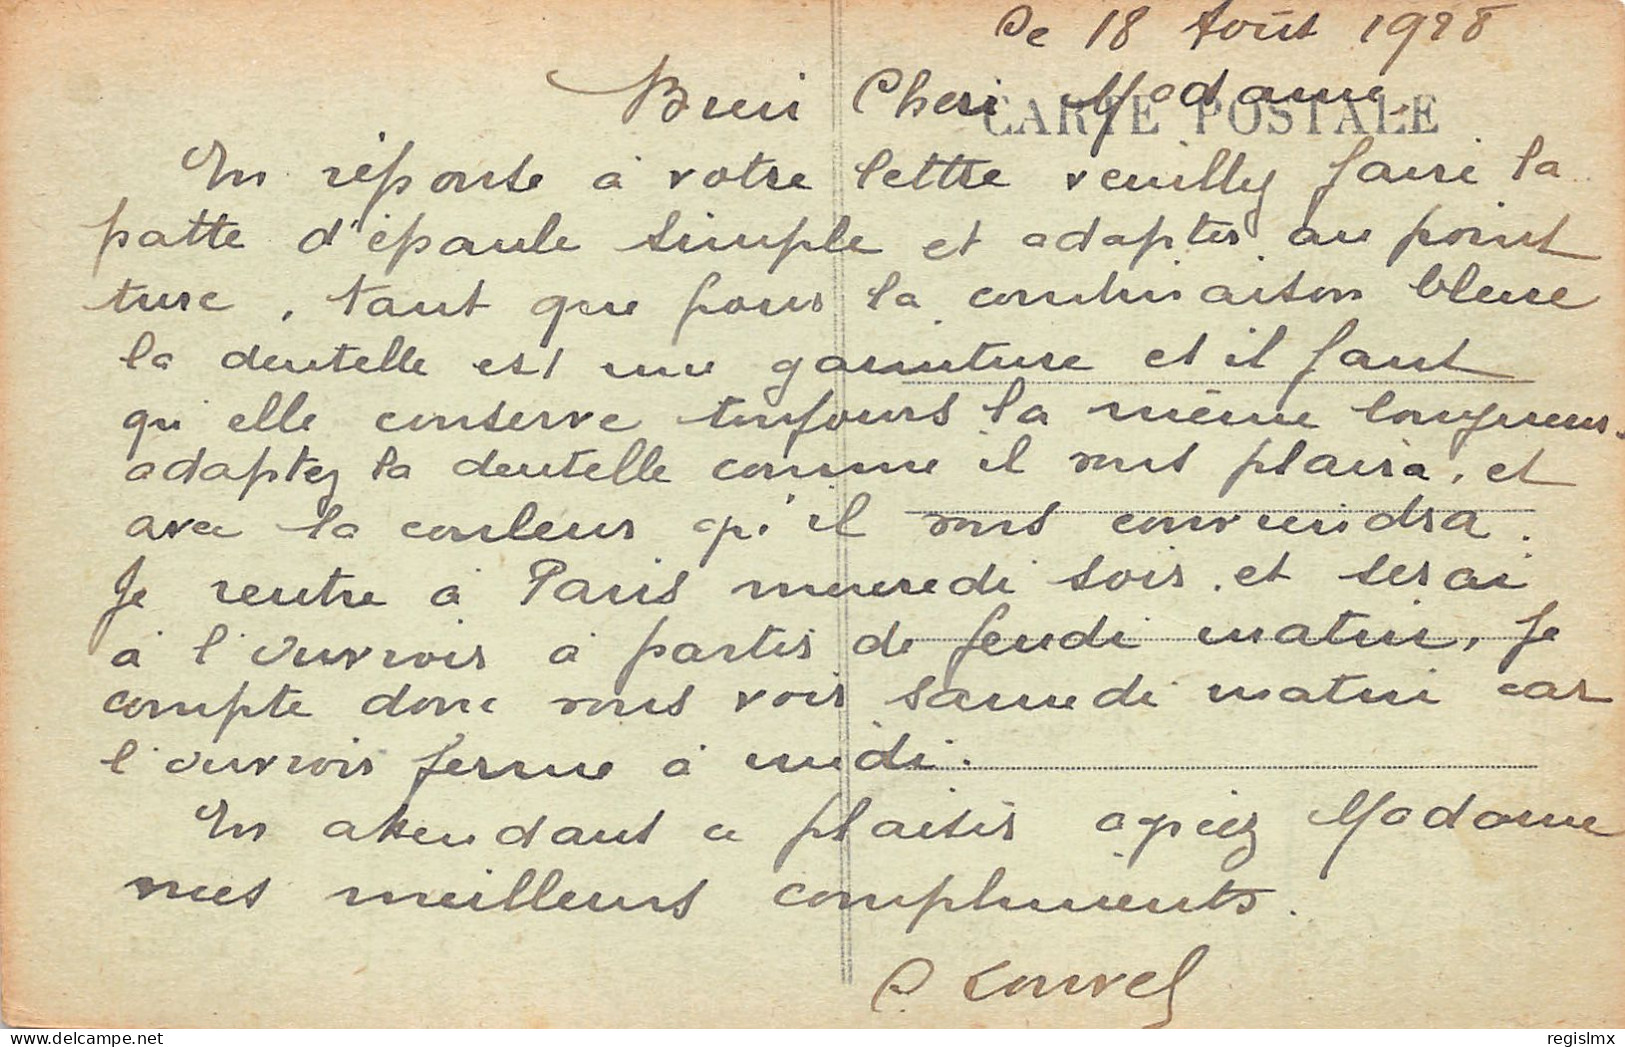 Ce 18 Août 1928
Bien Chère Madame
CARTE POSTALE
En réponse à votre lettre veuillez faire la
patte d'épaule simple et adapter au point
turc, tant que pour la combinaison bleue
la dentelle est une garniture et il faut
qu'elle conserve toujours la même longueur.
adaptez la dentelle comme il vous plaira, et
avec la couleur qu'il vous conviendra.
Je rentre à Paris mercredi soir, et serai
à l'ouvroir à partir de jeudi matin, Je
compte donc vous voir samedi matin car
l'ouvroir ferme à midi.
En attendant ce plaisir agréez Madame
mes meilleurs compliments.
Louvel
delcampe.net
regislmx